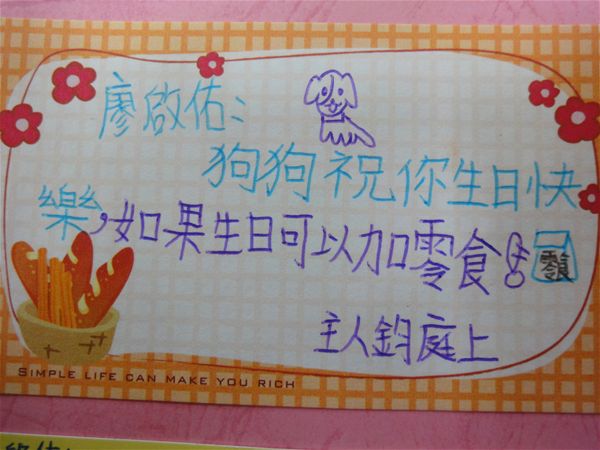 廖啟佑：
狗狗祝你生日快
樂，如果生日可以加零食！零食
主人鈞庭上
SIMPLE LIFE CAN MAKE YOU RICH